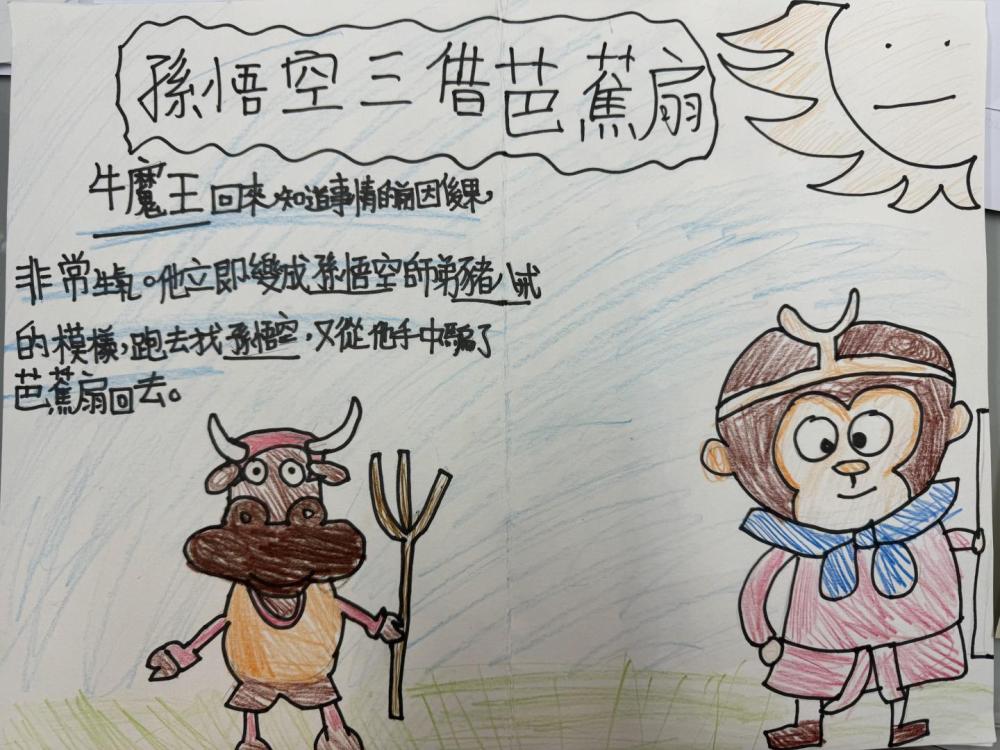 孫悟空三借芭蕉扇
牛魔王回來,知道事情的前因後果,
非常生氣。他立即變成孫悟空師弟豬八戒
的模樣,跑去找孫悟空,又從他手中騙了
芭蕉扇回去。